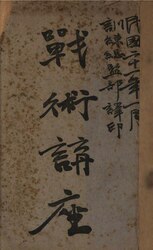 民國二十一年一月
訓練總監部譯印
戰術講座